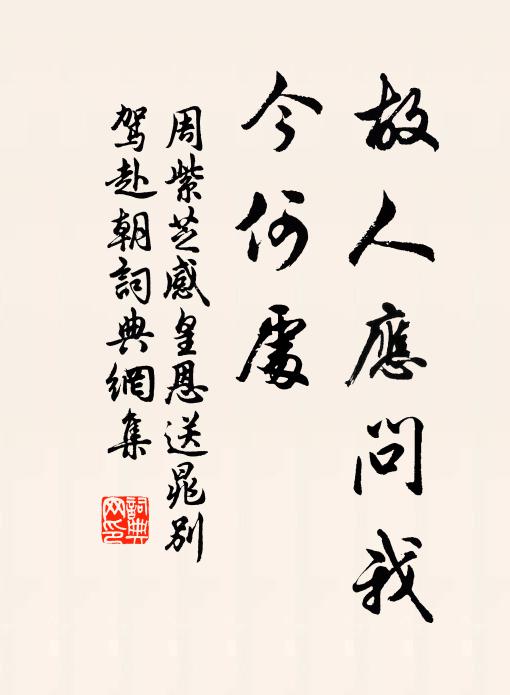 故人應問我
今何處
周紫芝感皇恩送晁別
駕赴朝詞典網集
詞典
網印